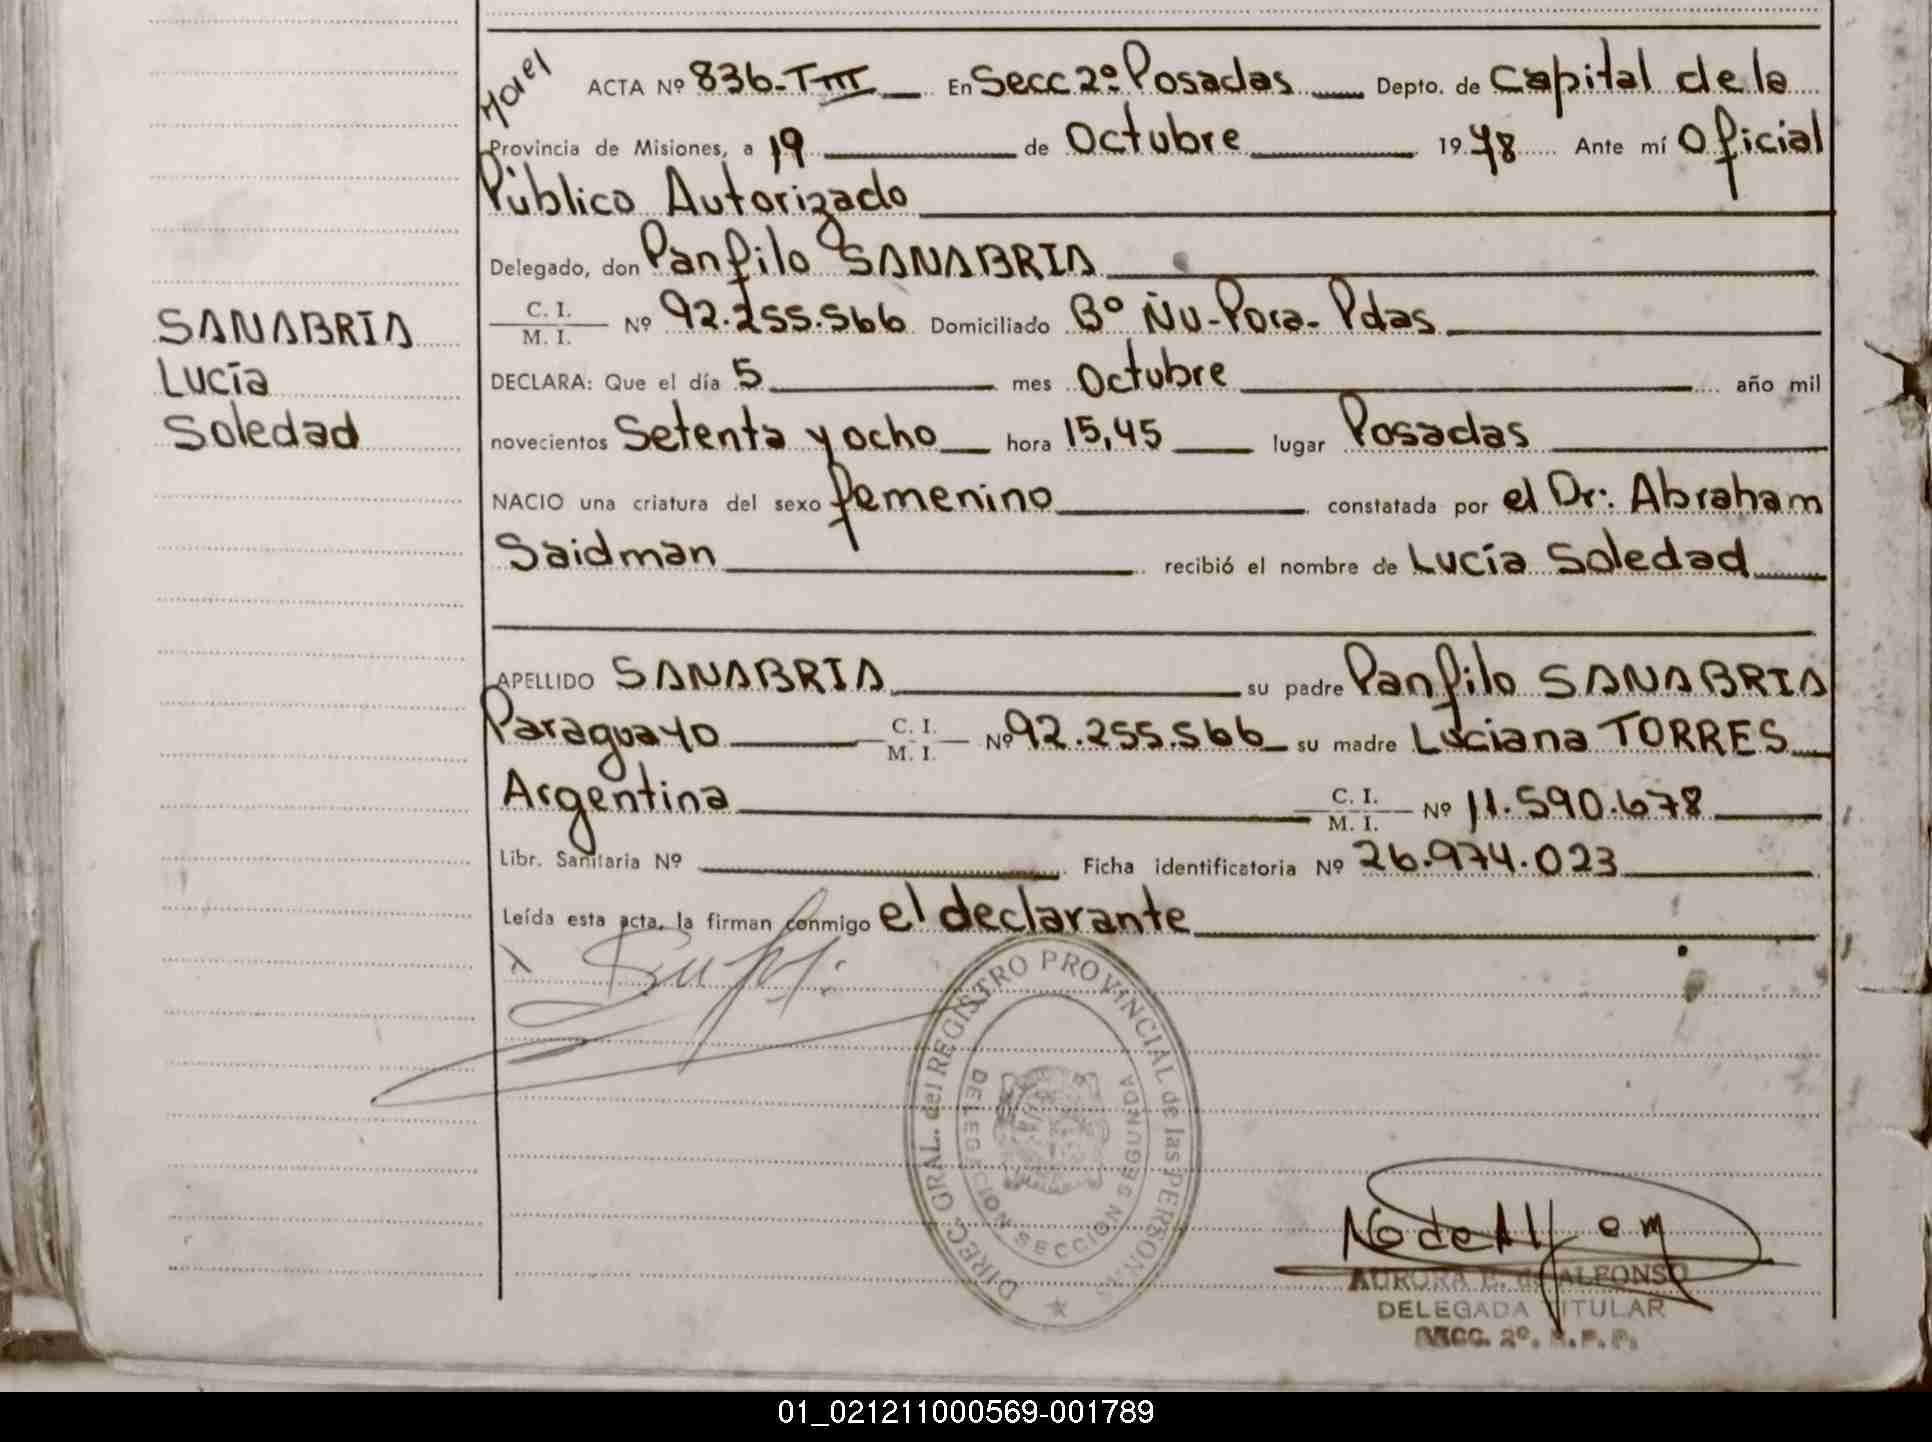 Horel
ACTA Nº 836-TIII En Secc 2º Posadas Depto. de Capital de la
Provincia de Misiones, a 19 de Octubre 1978 Ante mí Oficial
Público Autorizado
Delegado, don Panfilo SANABRIA
C. I.
M. I. Nº 92.255.566 Domiciliado Bº Ñu-Pora-Pdas
SANABRIA
Lucía
Soledad
DECLARA: Que el día 5 mes Octubre año mil
novecientos Setenta y ocho hora 15,45 lugar Posadas
NACIO una criatura del sexo femenino constatada por el Dr: Abraham
Saidman recibió el nombre de Lucía Soledad
APELLIDO SANABRIA su padre Panfilo SANABRIA
Paraguayo C. I. M. I. Nº 92.255.566 su madre Luciana TORRES
Argentina C. I. M. I. Nº 11.590.678
Libr. Sanitaria Nº Ficha identificatoria Nº 26.974.023
Leída esta acta, la firman conmigo el declarante
x
DIREC. GRAL. del REGISTRO PROVINCIAL de las PERSONAS
DELEGACION SECCION SEGUNDA
AURORA E. de ALFONSO
DELEGADA TITULAR
SECC. 2º. R. P. P.
01_021211000569-001789